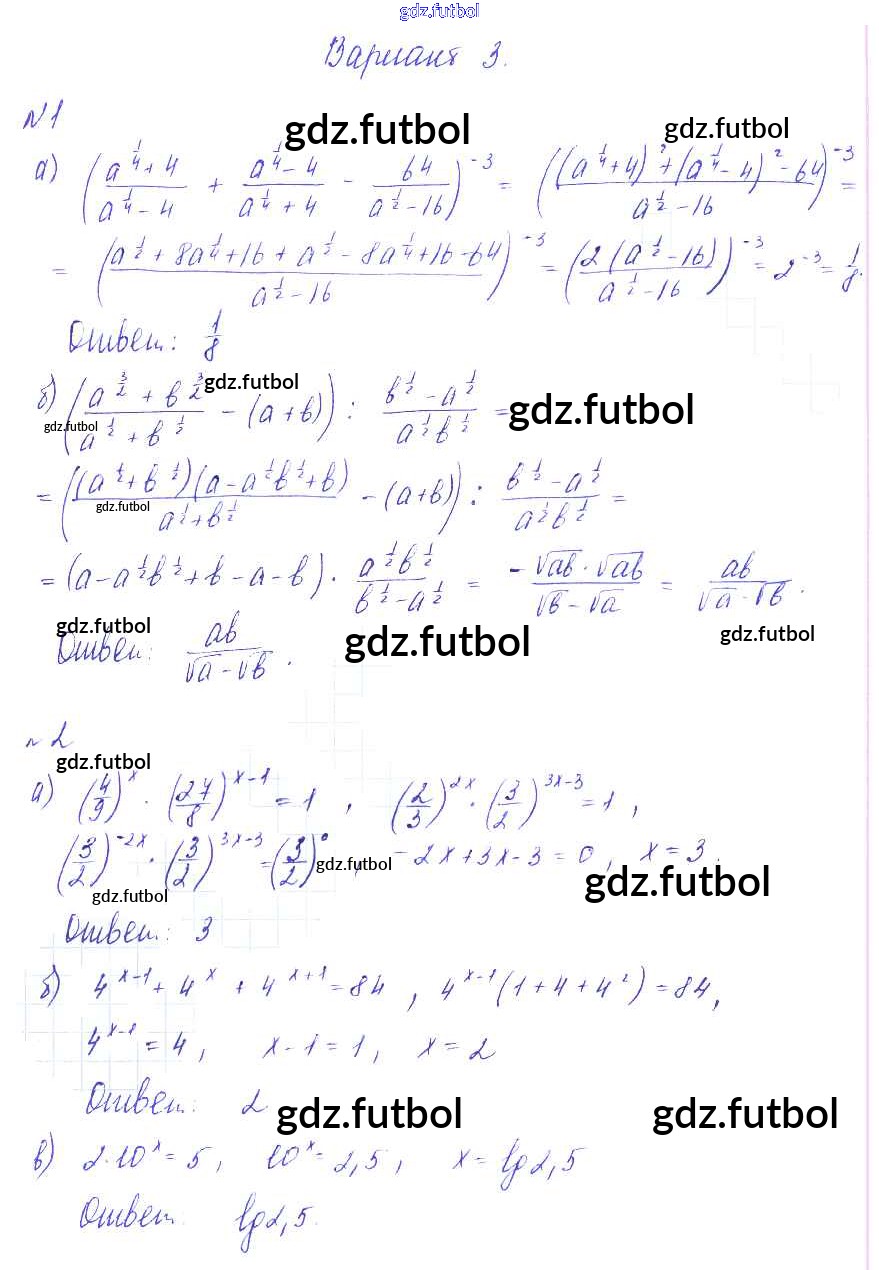 gdz.futbol
Вариант 3.
№1
gdz.futbol gdz.futbol
а) ((a^(1/4) + 4)/(a^(1/4) − 4) + (a^(1/4) − 4)/(a^(1/4) + 4) − 64/(a^(1/2) − 16))^(−3) = (((a^(1/4) + 4)² + (a^(1/4) − 4)² − 64)/(a^(1/2) − 16))^(−3) =
= ((a^(1/2) + 8a^(1/4) + 16 + a^(1/2) − 8a^(1/4) + 16 − 64)/(a^(1/2) − 16))^(−3) = (2(a^(1/2) − 16)/(a^(1/2) − 16))^(−3) = 2^(−3) = 1/8.
Ответ: 1/8
gdz.futbol
б) ((a^(3/2) + b^(3/2))/(a^(1/2) + b^(1/2)) − (a + b)) : (b^(1/2) − a^(1/2))/(a^(1/2)b^(1/2)) =
gdz.futbol gdz.futbol
= (((a^(1/2) + b^(1/2))(a − a^(1/2)b^(1/2) + b))/(a^(1/2) + b^(1/2)) − (a + b)) : (b^(1/2) − a^(1/2))/(a^(1/2)b^(1/2)) =
gdz.futbol
= (a − a^(1/2)b^(1/2) + b − a − b) · (a^(1/2)b^(1/2))/(b^(1/2) − a^(1/2)) = (−√ab · √ab)/(√b − √a) = ab/(√a − √b).
gdz.futbol gdz.futbol gdz.futbol
Ответ: ab/(√a − √b).
№2
gdz.futbol
а) (4/9)^x · (27/8)^(x−1) = 1, (2/3)^(2x) · (3/2)^(3x−3) = 1,
(3/2)^(−2x) · (3/2)^(3x−3) = (3/2)^0, −2x + 3x − 3 = 0, x = 3.
gdz.futbol gdz.futbol gdz.futbol
Ответ: 3
б) 4^(x−1) + 4^x + 4^(x+1) = 84, 4^(x−1)(1 + 4 + 4²) = 84,
4^(x−1) = 4, x − 1 = 1, x = 2
Ответ: 2
gdz.futbol gdz.futbol
в) 2·10^x = 5, 10^x = 2,5, x = lg2,5
Ответ: lg2,5.